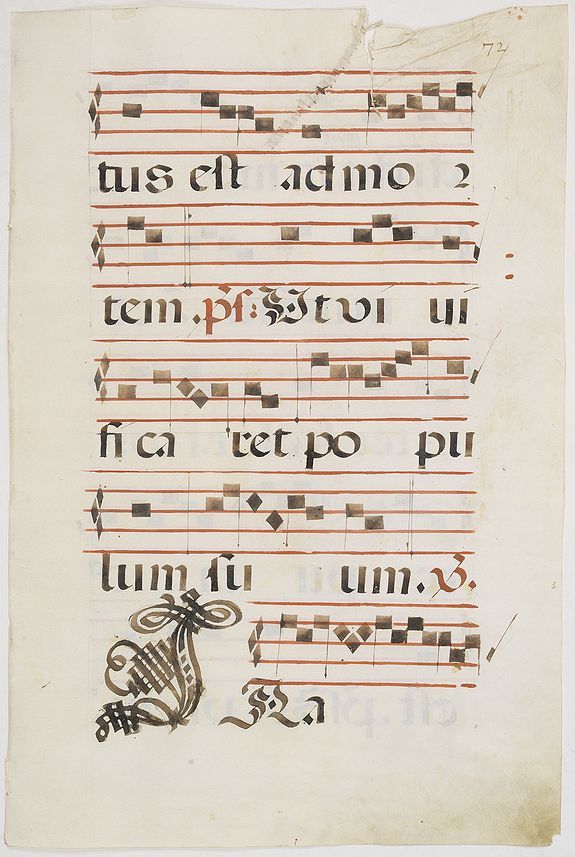 72
tus est ad mo 2
tem. ps: Vt vi ui
fi ca ret. po pu
lum su um. V.